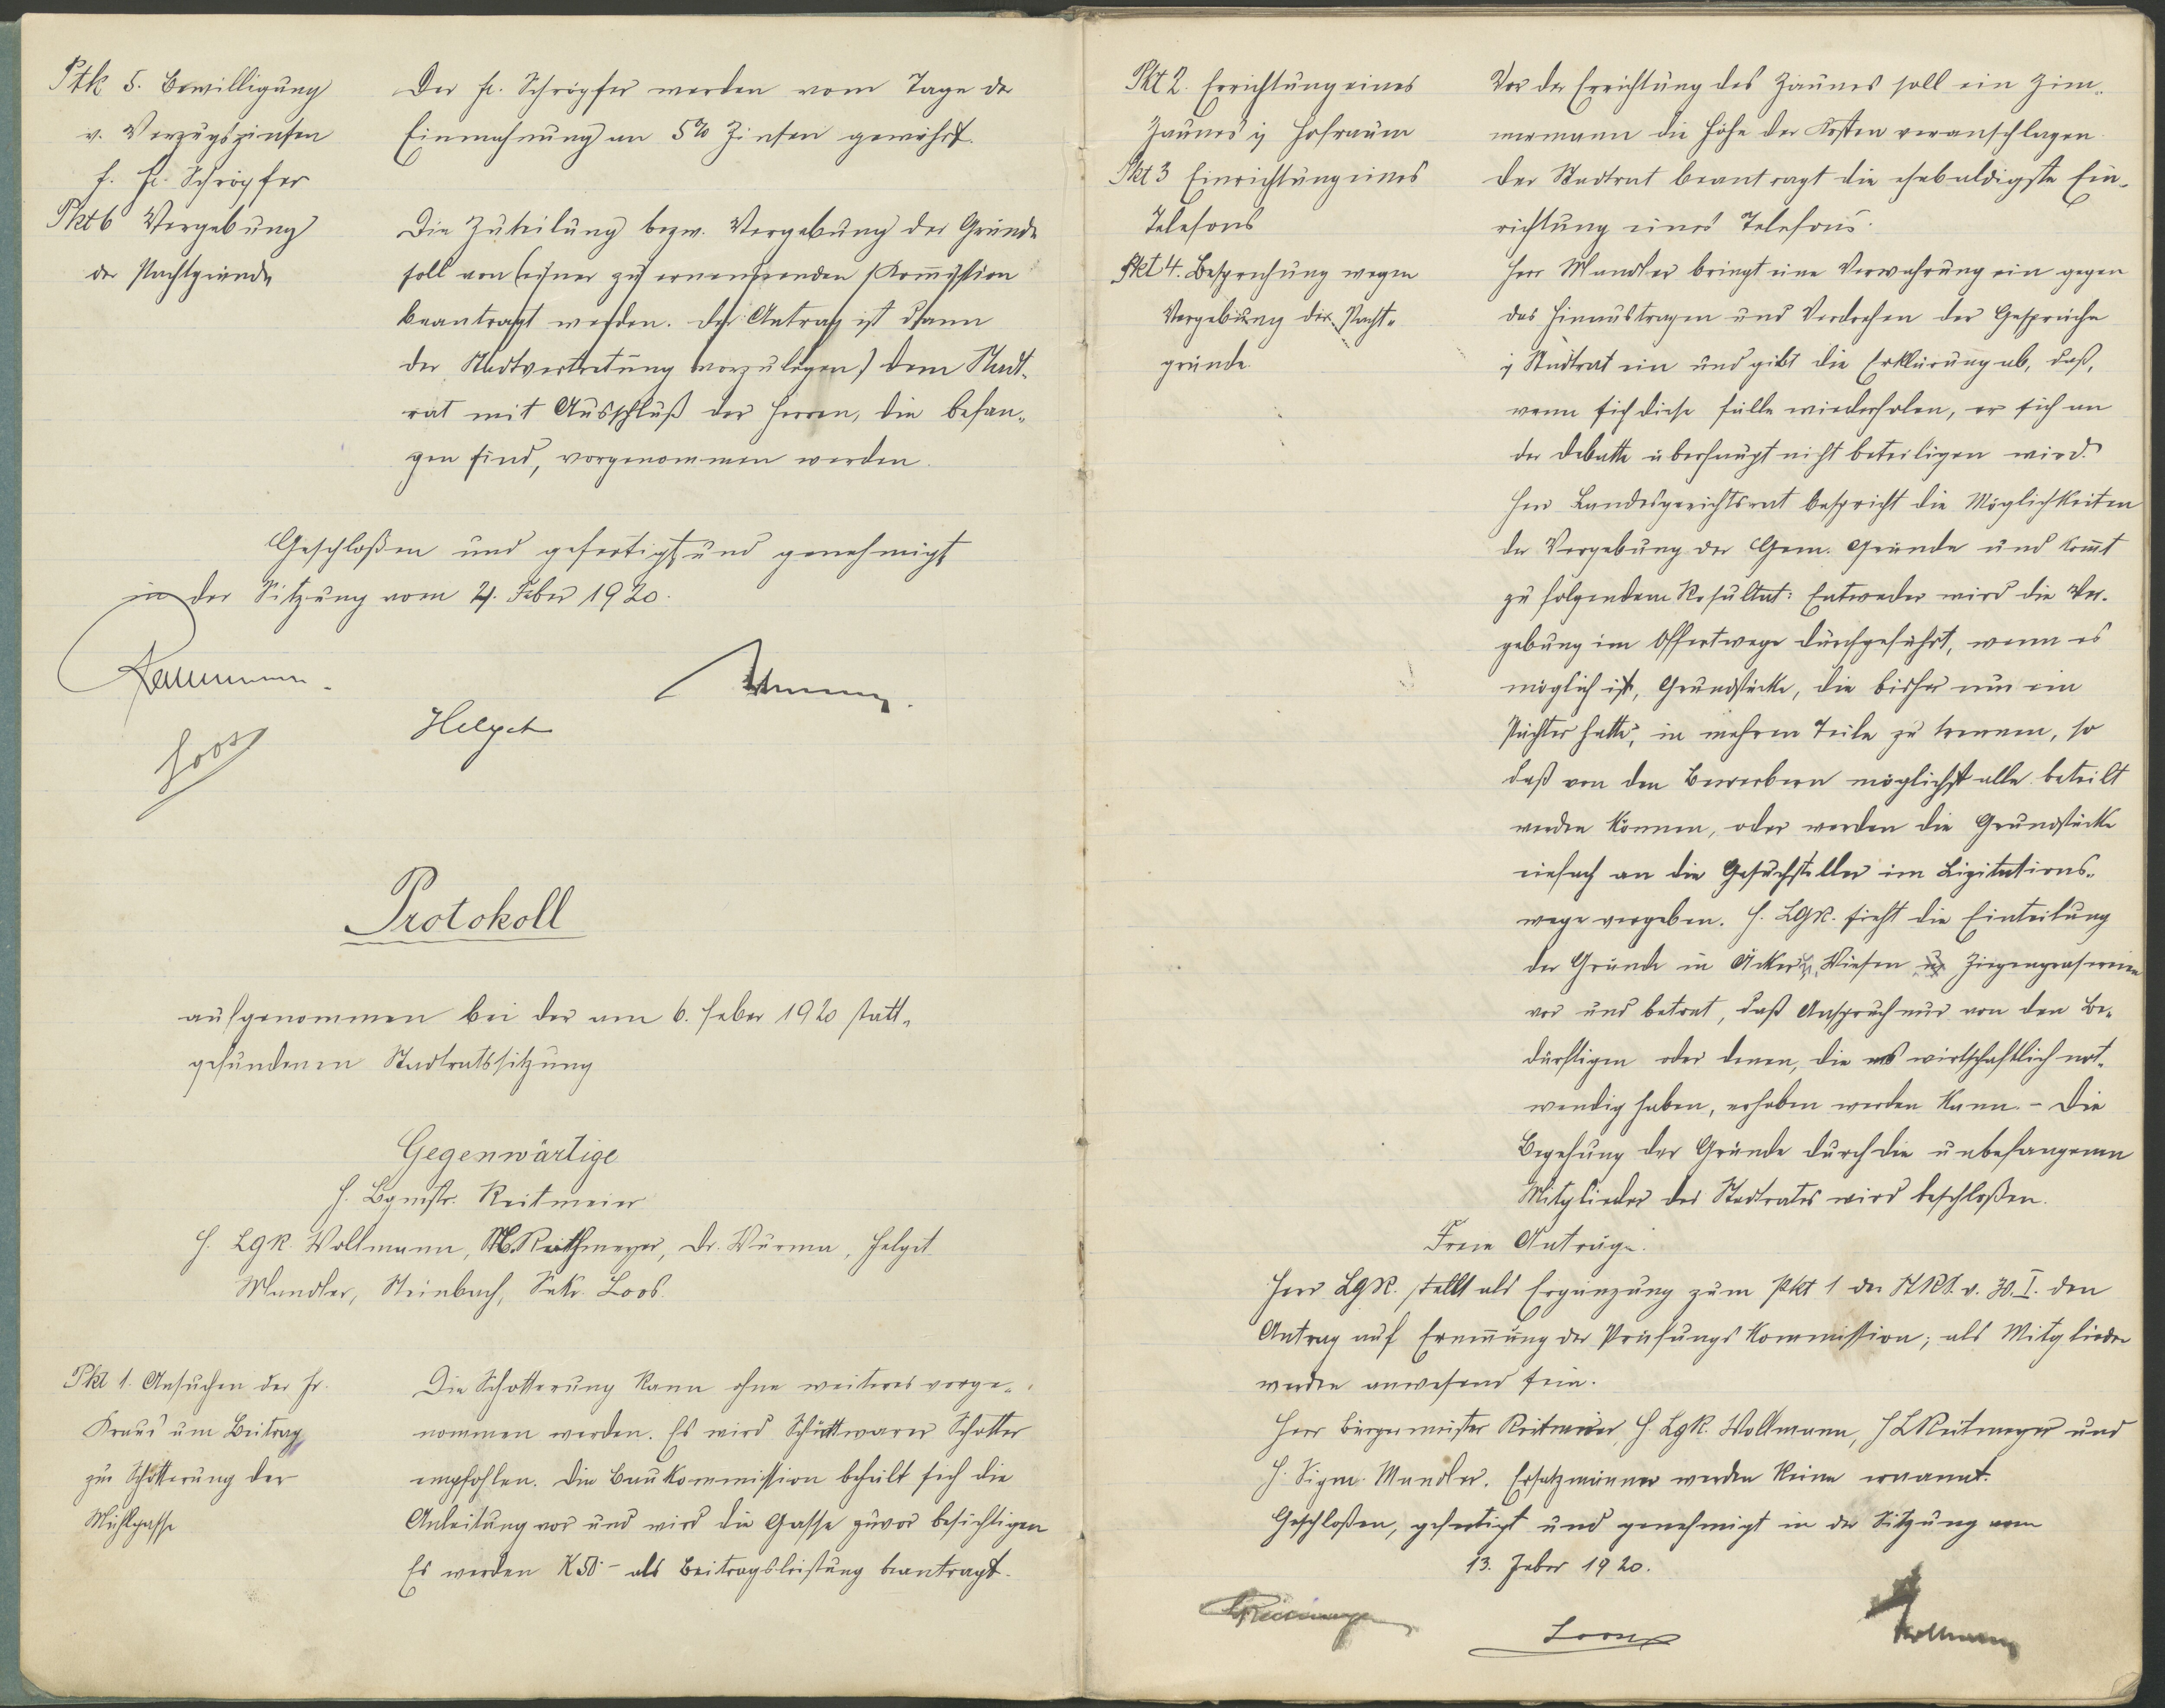 Ptk 5. Bewilligung
v. Verzugszinsen
f. Fr. Schröpfer
Der Fr. Schröpfer werden vom Tage der
Einmahnung an 5% Zinsen gewährt.
Pkt 6 Vergebung
der Pachtgründe
Die Zuteilung bezw. Vergebung der Gründe
soll von (einer zu ernennenden Kom̅ission
beantragt werden. Der Antrag ist dann
der Stadtvertretung vorzulegen) dem Stadt-
rat mit Ausschluß der Herren, die befan-
gen sind, vorgenommen werden.
Geschloßen und gefertigt und genehmigt
in der Sitzung vom 4. Feber 1920.
Helget
Loos
Protokoll
aufgenommen bei der am 6. Feber 1920 statt-
gefundenen Stadtratssitzung
Gegenwärtige
H. Bgmstr. Reitmeier
H. LGR. Wollmann, M. Reithmeyer, Dr. Wurma, Helget
Mandler, Steinbach, Sekr. Loos.
Pkt 1. Ansuchen der Fr.
Kraus um Beitrag
zur Schotterung der
Mühlgasse
Die Schotterung kann ohne weiteres vorge-
nommen werden. Es wird Schüttwarer Schotter
empfohlen. Die Baukommission behält sich die
Anleitung vor und wird die Gasse zuvor besichtigen
Es werden K 50·- als Beitragsleistung beantragt.
Pkt 2. Errichtung eines
Zaunes i. Hofraum
Vor der Errichtung des Zaunes soll ein Zim-
mermann die Höhe der Kosten veranschlagen.
Pkt 3 Einrichtung eines
Telefons
Der Stadtrat beantragt die ehebaldigste Ein-
richtung eines Telefons.
Pkt 4. Besprechung wegen
Vergebung der Pacht-
gründe.
Herr Mandler bringt eine Verwahrung ein gegen
das Hinaustragen und Verdrehen der Gespräche
i. Stadtrat ein und gibt die Erklärung ab, daß,
wenn sich diese Fälle wiederholen, er sich an
der Debatte überhaupt nicht beteiligen wird.
Herr Landesgerichtsrat bespricht die Möglichkeiten
der Vergebung der Gem. Gründe und kom̅t
zu folgendem Resultat: Entweder wird die Ver-
gebung im Offertwege durchgeführt, wenn es
möglich ist, Grundstücke, die bisher nur ein
Pächter hatte, in mehrere Teile zu trennen, so
daß von den Bewerbern möglichst alle beteilt
werden können, oder werden die Grundstücke
einfach an die Gesuchsteller im Lizitations-
wege vergeben. H. LGR. sieht die Einteilung
der Gründe in Äcker, Wiesen u. Ziegengraserein
vor und betont, daß Anspruch nur von den Be-
dürftigen oder denen, die es wirtschaftlich not-
wendig haben, erhoben werden kann. – Die
Begehung der Gründe durch die unbefangenen
Mitglieder des Stadtrates wird beschloßen.
Freie Anträge.
Herr LGR. stellt als Ergänzung zum Pkt 1 der v. 30. I. den
Antrag auf Ernen̅ung der Prüfungs Kommission; als Mitglieder
werden anwesend sein.
Herr Bürgermeister Reitmeier, H. LgR. Wollmann, H L Reitmeyer und
H. Sigm. Mandler. Ersatzmänner werden keine ernannt.
Geschloßen, gefertigt und genehmigt in der Sitzung vom
13. Feber 1920.
Loos
Wollmann